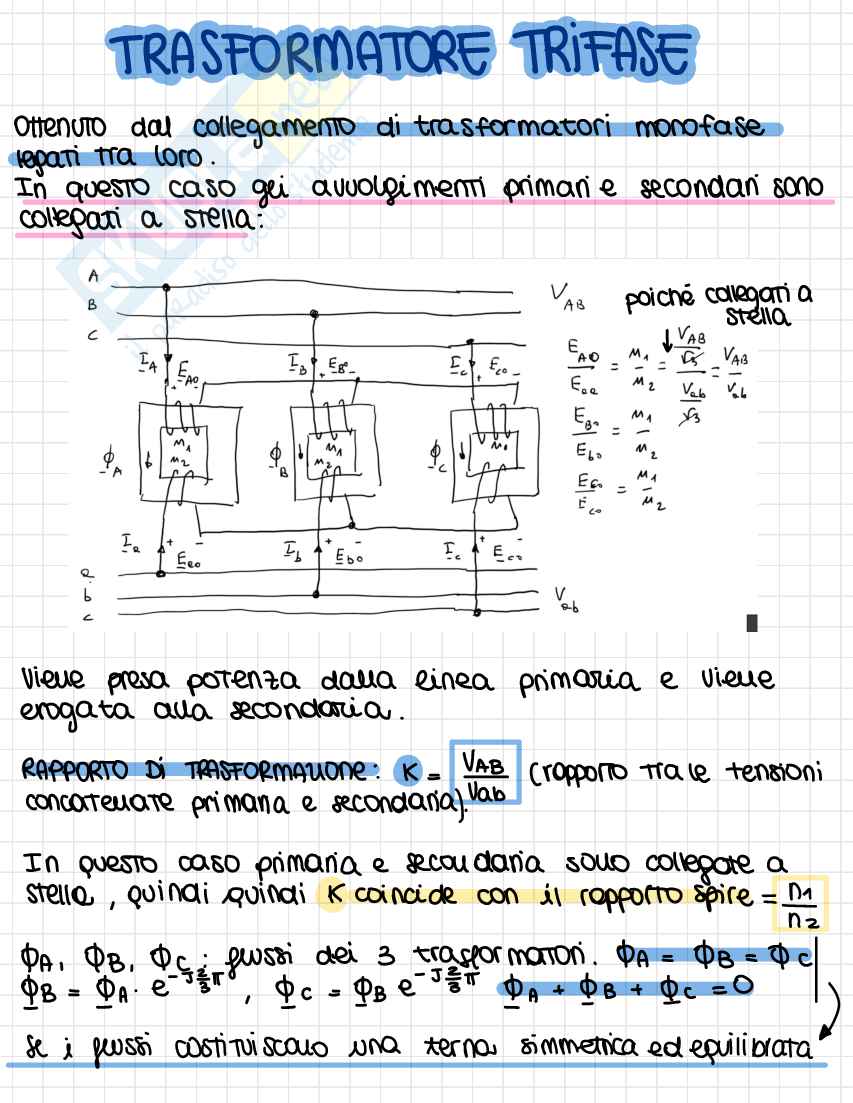 TRASFORMATORE TRIFASE
Ottenuto dal collegamento di trasformatori monofase
legati tra loro.
In questo caso gli avvolgimenti primari e secondari sono
collegati a stella:
SKUOLA.net
il paradiso dello studente
A
B
C
V_AB
poiché collegati a
stella
I_A E_A0 + -
I_B E_B0 + -
I_C E_C0 + -
E_A0/E_a0 = n1/n2 = (V_AB/√3)/(V_ab/√3) = V_AB/V_ab
E_B0/E_b0 = n1/n2
E_C0/E_c0 = n1/n2
Φ_A n1 n2
Φ_B n1 n2
Φ_C n1
I_a + - E_a0
I_b + - E_b0
I_c + - E_c0
a
b
c
V_ab
Viene presa potenza dalla linea primaria e viene
erogata alla secondaria.
RAPPORTO DI TRASFORMAZIONE: K = V_AB/V_ab (rapporto tra le tensioni
concatenate primaria e secondaria).
In questo caso primaria e secondaria sono collegate a
stella, quindi quindi K coincide con il rapporto spire = n1/n2
Φ_A, Φ_B, Φ_C : flussi dei 3 trasformatori. Φ_A = Φ_B = Φ_C
Φ_B = Φ_A · e^(-J 2/3 π), Φ_C = Φ_B e^(-J 2/3 π) Φ_A + Φ_B + Φ_C = 0
se i flussi costituiscono una terna simmetrica ed equilibrata